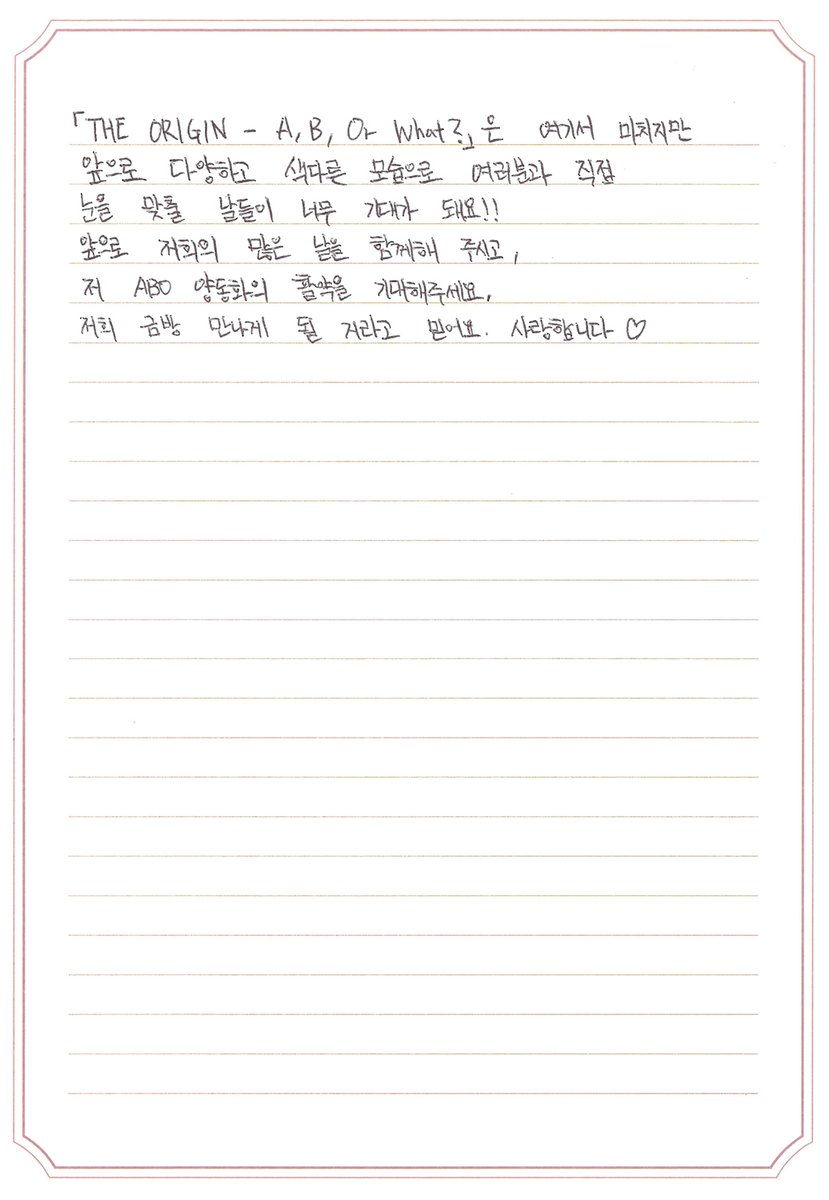 「THE ORIGIN - A, B, Or What?」은 여기서 마치지만
앞으로 다양하고 색다른 모습으로 여러분과 직접
눈을 맞출 날들이 너무 기대가 돼요!!
앞으로 저희의 많은 날을 함께해 주시고,
저 ABO 양동화의 활약을 기대해주세요,
저희 금방 만나게 될 거라고 믿어요. 사랑합니다 ♡